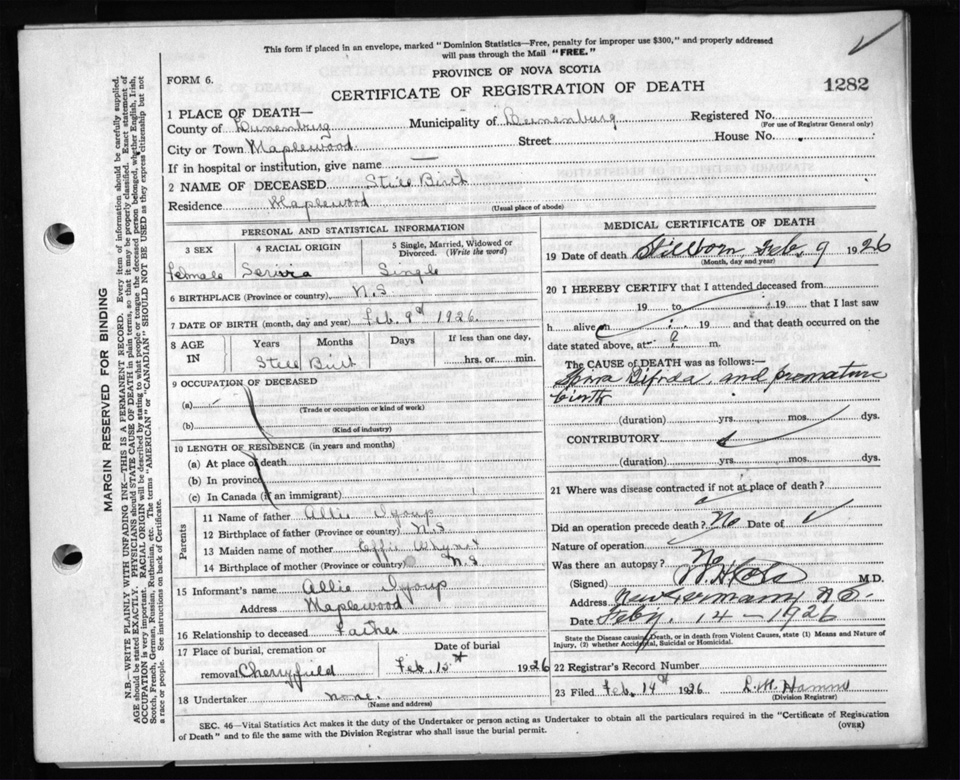 This form if placed in an envelope, marked "Dominion Statistics—Free, penalty for improper use $300," and properly addressed
will pass through the Mail "FREE."
FORM 6.
PROVINCE OF NOVA SCOTIA
CERTIFICATE OF REGISTRATION OF DEATH
1282
1 PLACE OF DEATH—
County of Lunenburg Municipality of Lunenburg Registered No.
(For use of Registrar General only)
City or Town Maplewood Street House No.
If in hospital or institution, give name —
2 NAME OF DECEASED Still Birt
Residence Maplewood
(Usual place of abode)
PERSONAL AND STATISTICAL INFORMATION
3 SEX 4 RACIAL ORIGIN 5 Single, Married, Widowed or Divorced. (Write the word)
female Single
6 BIRTHPLACE (Province or country) N.S
7 DATE OF BIRTH (month, day and year) Feb. 9th 1926.
8 AGE IN Years Months Days If less than one day,
Still Birt hrs. or min.
9 OCCUPATION OF DECEASED
(a)
(Trade or occupation or kind of work)
(b)
(Kind of industry)
10 LENGTH OF RESIDENCE (in years and months)
(a) At place of death
(b) In province
(c) In Canada (if an immigrant)
Parents
11 Name of father Allie
12 Birthplace of father (Province or country) N.S
13 Maiden name of mother Effie Whynot
14 Birthplace of mother (Province or country) N.S
15 Informant's name Allie
Address Maplewood
16 Relationship to deceased Father
17 Place of burial, cremation or removal Cherryfield
Date of burial
Feb 1926
18 Undertaker none.
(Name and address)
MEDICAL CERTIFICATE OF DEATH
19 Date of death Stillborn Feb. 9 1926
(Month, day and year)
20 I HEREBY CERTIFY that I attended deceased from
19 to 19 that I last saw
h alive on 19 and that death occurred on the
date stated above, at ? m.
The CAUSE OF DEATH was as follows:—
Spina Bifida, and premature
birth
(duration) yrs. mos. dys.
CONTRIBUTORY
(duration) yrs. mos. dys.
21 Where was disease contracted if not at place of death?
Did an operation precede death? No Date of
Nature of operation
Was there an autopsy? No
(Signed) M.D.
Address New Germany, N.S.
Date Feby. 14 – 1926
State the Disease causing Death, or in death from Violent Causes, state (1) Means and Nature of
Injury, (2) whether Accidental, Suicidal or Homicidal.
22 Registrar's Record Number
23 Filed Feb. 14th 1926
(Division Registrar)
SEC. 46—Vital Statistics Act makes it the duty of the Undertaker or person acting as Undertaker to obtain all the particulars required in the "Certificate of Registration
of Death" and to file the same with the Division Registrar who shall issue the burial permit.
(OVER)
MARGIN RESERVED FOR BINDING
N.B.—WRITE PLAINLY WITH UNFADING INK—THIS IS A PERMANENT RECORD. Every item of information should be carefully supplied.
AGE should be stated EXACTLY. PHYSICIANS should STATE CAUSE OF DEATH in plain terms, so that it may be properly classified. Exact statement of
OCCUPATION is very important. RACIAL ORIGIN will be described by stating to what people or tongue the deceased person belonged, whether English, Irish,
Scotch, French, German, Russian, Ruthenian, etc. The terms "AMERICAN" or "CANADIAN" SHOULD NOT BE USED as they express citizenship but not
a race or people. See instructions on back of Certificate.